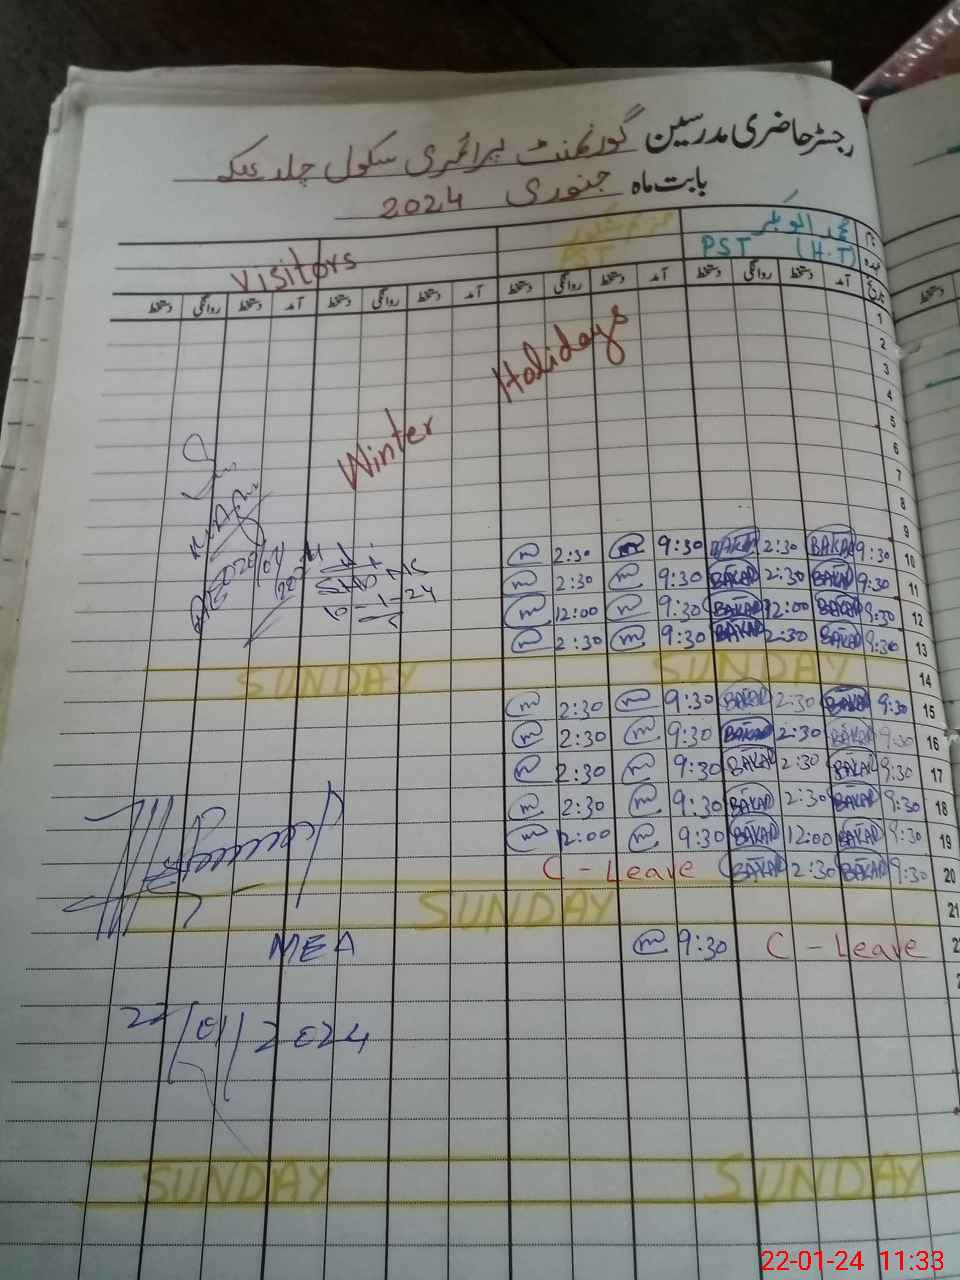 رجسٹر حاضری مدرسین گورنمنٹ پرائمری سکول
بابت ماہ جنوری 2024
نام محمد ابوبکر
عہدہ PST (H.T) PST Visitors
تاریخ آمد دستخط روانگی دستخط آمد دستخط روانگی دستخط آمد دستخط روانگی دستخط آمد دستخط روانگی دستخط
1
2
3
4
5
6
7
8
9
Winter Holidays
2:30 9:30 BAKAR 2:30 BAKAR 9:30 10
2:30 9:30 BAKAR 2:30 BAKAR 9:30 11
12:00 9:30 BAKAR 12:00 BAKAR 9:30 12
2:30 9:30 BAKAR 2:30 BAKAR 9:30 13
SUNDAY SUNDAY 14
2:30 9:30 BAKAR 2:30 BAKAR 9:30 15
2:30 9:30 BAKAR 2:30 BAKAR 9:30 16
2:30 9:30 BAKAR 2:30 BAKAR 9:30 17
2:30 9:30 BAKAR 2:30 BAKAR 9:30 18
12:00 9:30 BAKAR 12:00 BAKAR 9:30 19
C - Leave BAKAR 2:30 BAKAR 9:30 20
SUNDAY 21
MEA 9:30 C - Leave
22/01/2024
SUNDAY SUNDAY
22-01-24 11:33